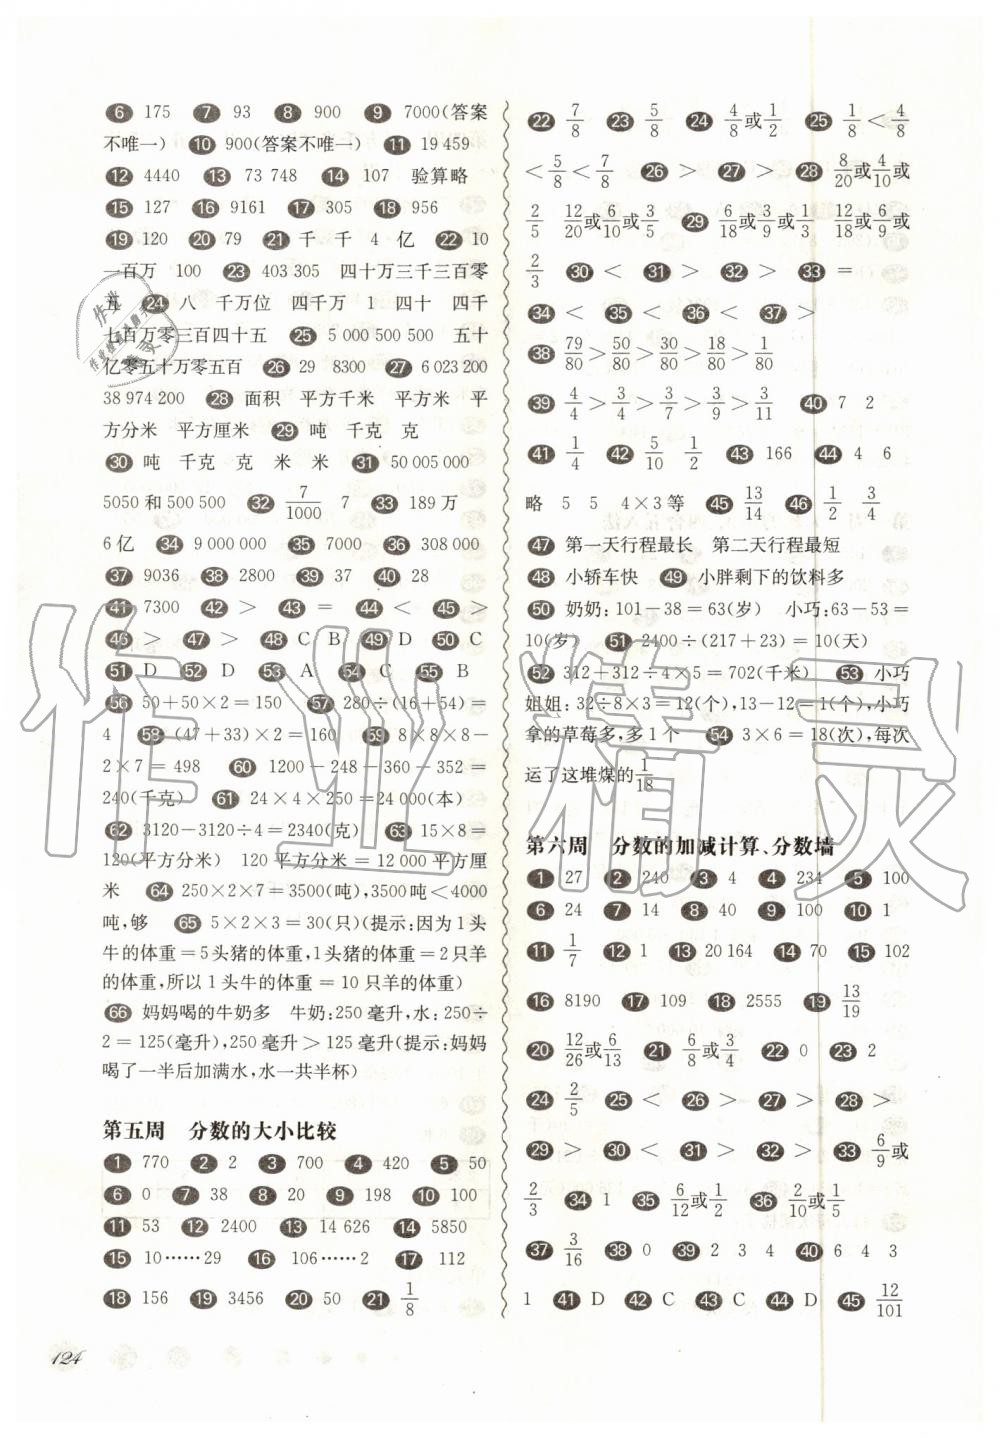 ⑥ 175 ⑦ 93 ⑧ 900 ⑨ 7000(答案
不唯一) ⑩ 900(答案不唯一) ⑪ 19 459
⑫ 4440 ⑬ 73 748 ⑭ 107 验算略
⑮ 127 ⑯ 9161 ⑰ 305 ⑱ 956
⑲ 120 ⑳ 79 ㉑ 千 千 4 亿 ㉒ 10
一百万 100 ㉓ 403 305 四十万三千三百零
五 ㉔ 八 千万位 四千万 1 四十 四千
七百万零三百四十五 ㉕ 5 000 500 500 五十
亿零五十万零五百 ㉖ 29 8300 ㉗ 6 023 200
38 974 200 ㉘ 面积 平方千米 平方米 平
方分米 平方厘米 ㉙ 吨 千克 克
㉚ 吨 千克 克 米 米 ㉛ 50 005 000
5050 和 500 500 ㉜ 7/1000 7 ㉝ 189 万
6 亿 ㉞ 9 000 000 ㉟ 7000 ㊱ 308 000
㊲ 9036 ㊳ 2800 ㊴ 37 ㊵ 28
㊶ 7300 ㊷ > ㊸ = ㊹ < ㊺ >
㊻ > ㊼ > ㊽ C B ㊾ D ㊿ C
51 D 52 D 53 A 54 C 55 B
56 50+50×2=150 57 280÷(16+54)=
4 58 (47+33)×2=160 59 8×8×8-
2×7=498 60 1200-248-360-352=
240(千克) 61 24×4×250=24 000(本)
62 3120-3120÷4=2340(克) 63 15×8=
120(平方分米) 120 平方分米=12 000 平方厘
米 64 250×2×7=3500(吨),3500吨<4000
吨,够 65 5×2×3=30(只)(提示:因为1头
牛的体重=5头猪的体重,1头猪的体重=2只羊
的体重,所以 1 头牛的体重=10 只羊的体重)
66 妈妈喝的牛奶多 牛奶:250毫升,水:250÷
2=125(毫升),250毫升>125毫升(提示:妈妈
喝了一半后加满水,水一共半杯)
第五周 分数的大小比较
① 770 ② 2 ③ 700 ④ 420 ⑤ 50
⑥ 0 ⑦ 38 ⑧ 20 ⑨ 198 ⑩ 100
⑪ 53 ⑫ 2400 ⑬ 14 626 ⑭ 5850
⑮ 10……29 ⑯ 106……2 ⑰ 112
⑱ 156 ⑲ 3456 ⑳ 50 ㉑ 1/8
124
㉒ 7/8 ㉓ 5/8 ㉔ 4/8或1/2 ㉕ 1/8<4/8
<5/8<7/8 ㉖ > ㉗ > ㉘ 8/20或4/10或
2/5 12/20或6/10或3/5 ㉙ 6/18或3/9或1/3 12/18或6/9或
2/3 ㉚ < ㉛ > ㉜ > ㉝ =
㉞ < ㉟ < ㊱ < ㊲ >
㊳ 79/80>50/80>30/80>18/80>1/80
㊴ 4/4>3/4>3/7>3/9>3/11 ㊵ 7 2
㊶ 1/4 ㊷ 5/10 1/2 ㊸ 166 ㊹ 4 6
略 5 5 4×3等 ㊺ 13/14 ㊻ 1/2 3/4
㊼ 第一天行程最长 第二天行程最短
㊽ 小轿车快 ㊾ 小胖剩下的饮料多
㊿ 奶奶:101-38=63(岁) 小巧:63-53=
10(岁) 51 2400÷(217+23)=10(天)
52 312+312÷4×5=702(千米) 53 小巧
姐姐:32÷8×3=12(个),13-12=1(个),小巧
拿的草莓多,多1个 54 3×6=18(次),每次
运了这堆煤的1/18
第六周 分数的加减计算、分数墙
① 27 ② 240 ③ 4 ④ 234 ⑤ 100
⑥ 24 ⑦ 14 ⑧ 40 ⑨ 100 ⑩ 1
⑪ 1/7 ⑫ 1 ⑬ 20 164 ⑭ 70 ⑮ 102
⑯ 8190 ⑰ 109 ⑱ 2555 ⑲ 13/19
⑳ 12/26或6/13 ㉑ 6/8或3/4 ㉒ 0 ㉓ 2
㉔ 2/5 ㉕ < ㉖ > ㉗ > ㉘ >
㉙ > ㉚ < ㉛ > ㉜ > ㉝ 6/9或
2/3 ㉞ 1 ㉟ 6/12或1/2 ㊱ 2/10或1/5
㊲ 3/16 ㊳ 0 ㊴ 2 3 4 ㊵ 6 4 3
1 ㊶ D ㊷ C ㊸ C ㊹ D ㊺ 12/101
作业精灵